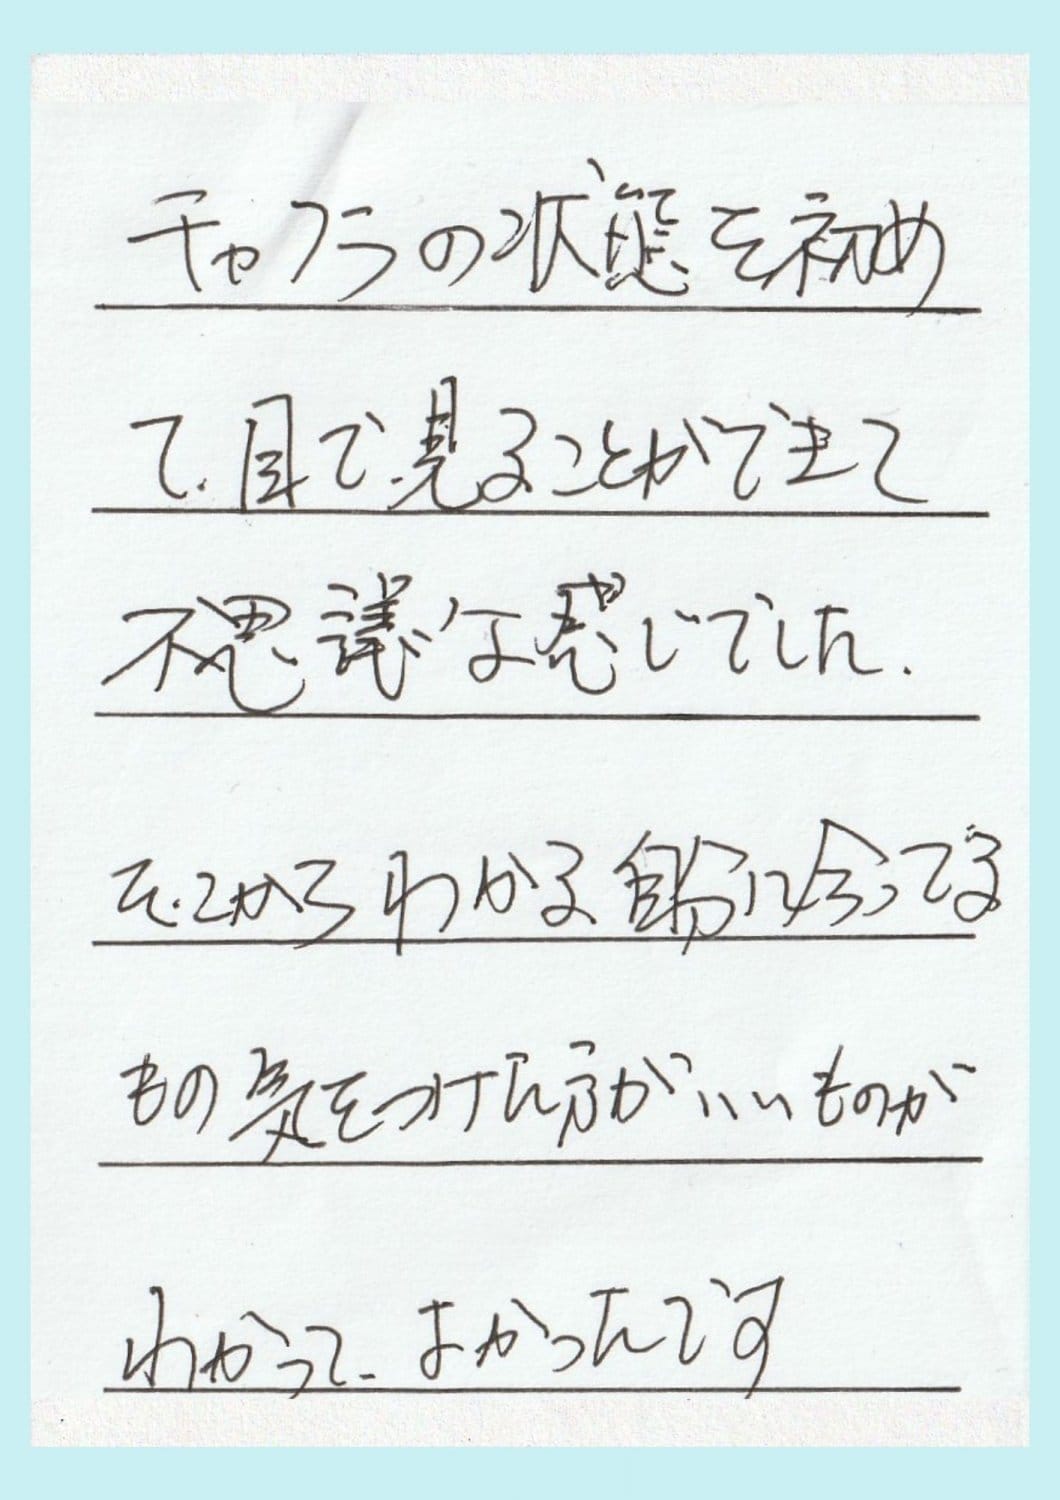 チャクラの状態を初め
て、目で見ることができて
不思議な感じでした。
そこからわかる自分に合ってる
もの気をつけた方がいいものが
わかって、よかったです